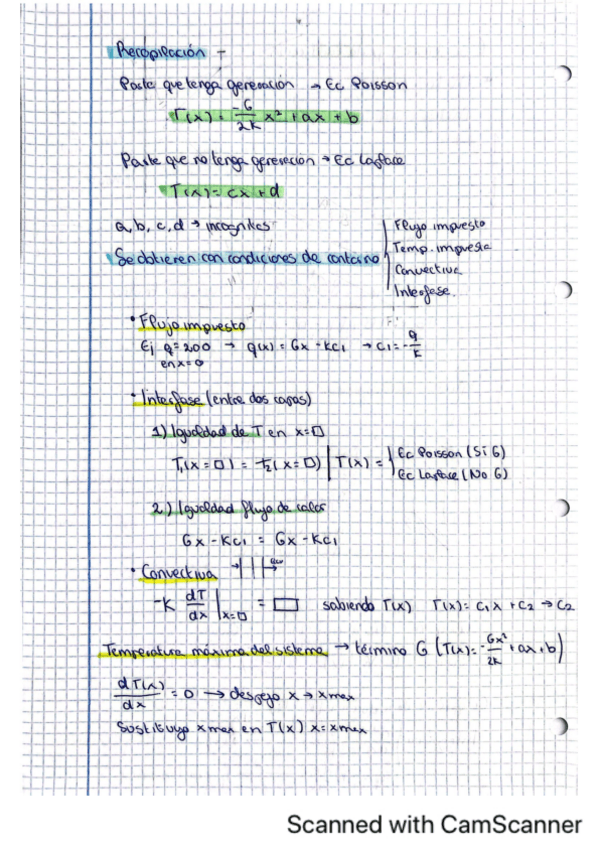 Recopilación -
Parte que tenga generación → Ec Poisson
T(x) = -G/2K x² + ax + b
Parte que no tenga generación → Ec Laplace
T(x) = cx + d
a, b, c, d → incognitas
Se obtienen con condiciones de contorno
Flujo impuesto
Temp. impuesta
Convectiva
Interfase.
• Flujo impuesto
Ej q=200 → q(x) = Gx - KC1 → C1 = -q/K
en x=0
• Interfase (entre dos capas)
1) Igualdad de T en x=□
T1(x=□) = T2(x=□) | T(x) = Ec Poisson (Sí G)
Ec Laplace (No G)
2) Igualdad flujo de calor
Gx - KC1 = Gx - KC1
• Convectiva
-K dT/dx |x=□ = □ sabiendo T(x) T(x) = C1x + C2 → C2
Temperatura máxima del sistema → término G (T(x) = -Gx²/2K + ax + b)
dT(x)/dx = 0 → despejo x → xmax
Sustituyo xmax en T(x) x=xmax
Scanned with CamScanner